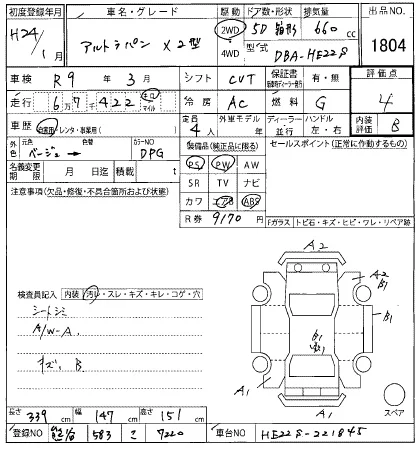 初度登録年月 車名・グレード 駆動 ドア数・形状 排気量 出品NO.
H24/1月 アルトラパン X2型 2WD 5D 箱形 660cc 1804
4WD 型式 DBA-HE22S
車検 R9年 3月 シフト CVT 保証書 有・無 評価点
走行 6万7千422 キロ マイル 冷房 AC 燃料 G 4
車歴 自家用・レンタ・事業用( ) 定員 4人 外車モデル 年 ディーラー 並行 ハンドル 左・右 内装評価 B
外色 元色 ベージュ→ 色替 カラーNO DPG 装備品(純正品に限る) セールスポイント(正常に作動するもの)
名義変更期限 月 日迄 積載 t PS PW AW
注意事項(欠品・修復・不具合箇所および状態) SR TV ナビ
カワ エアB ABS
R券 9170円 Fガラス トビ石・キズ・ヒビ・ワレ・リペア跡
A2
A2
B1
B1
検査員記入 内装 汚レ・スレ・キズ・キレ・コゲ・穴
シートシミ
A/W-A
キズ、B
B1
A1
A1
A1
スペア
長さ 339cm 幅 147cm 高さ 151cm
登録NO 583 7220 車台NO HE22S-221845